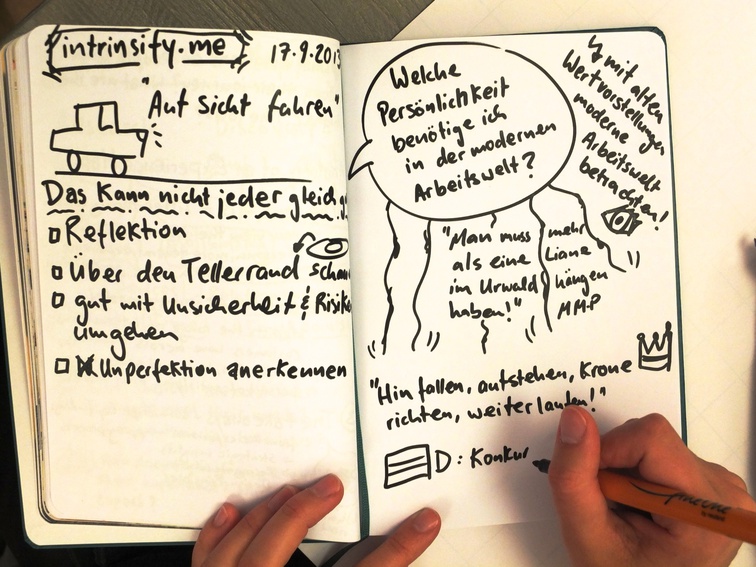 intrinsify.me 17.9.2013
"Auf Sicht fahren"
Das Kann nicht jeder gleich
Reflektion
Über den Tellerrand
gut mit Unsicherheit & Risiko
umgehen
Unperfektion anerkennen
Welche
Persönlichkeit
benötige ich
in der modernen
Arbeitswelt?
mit alten
Wertvorstellungen
moderne
Arbeitswelt
betrachten!
"Man muss mehr
als eine Liane
im Urwald hängen
haben!" MMP
"Hinfallen, aufstehen, Krone
richten, weiterlaufen!"
D: Konkur